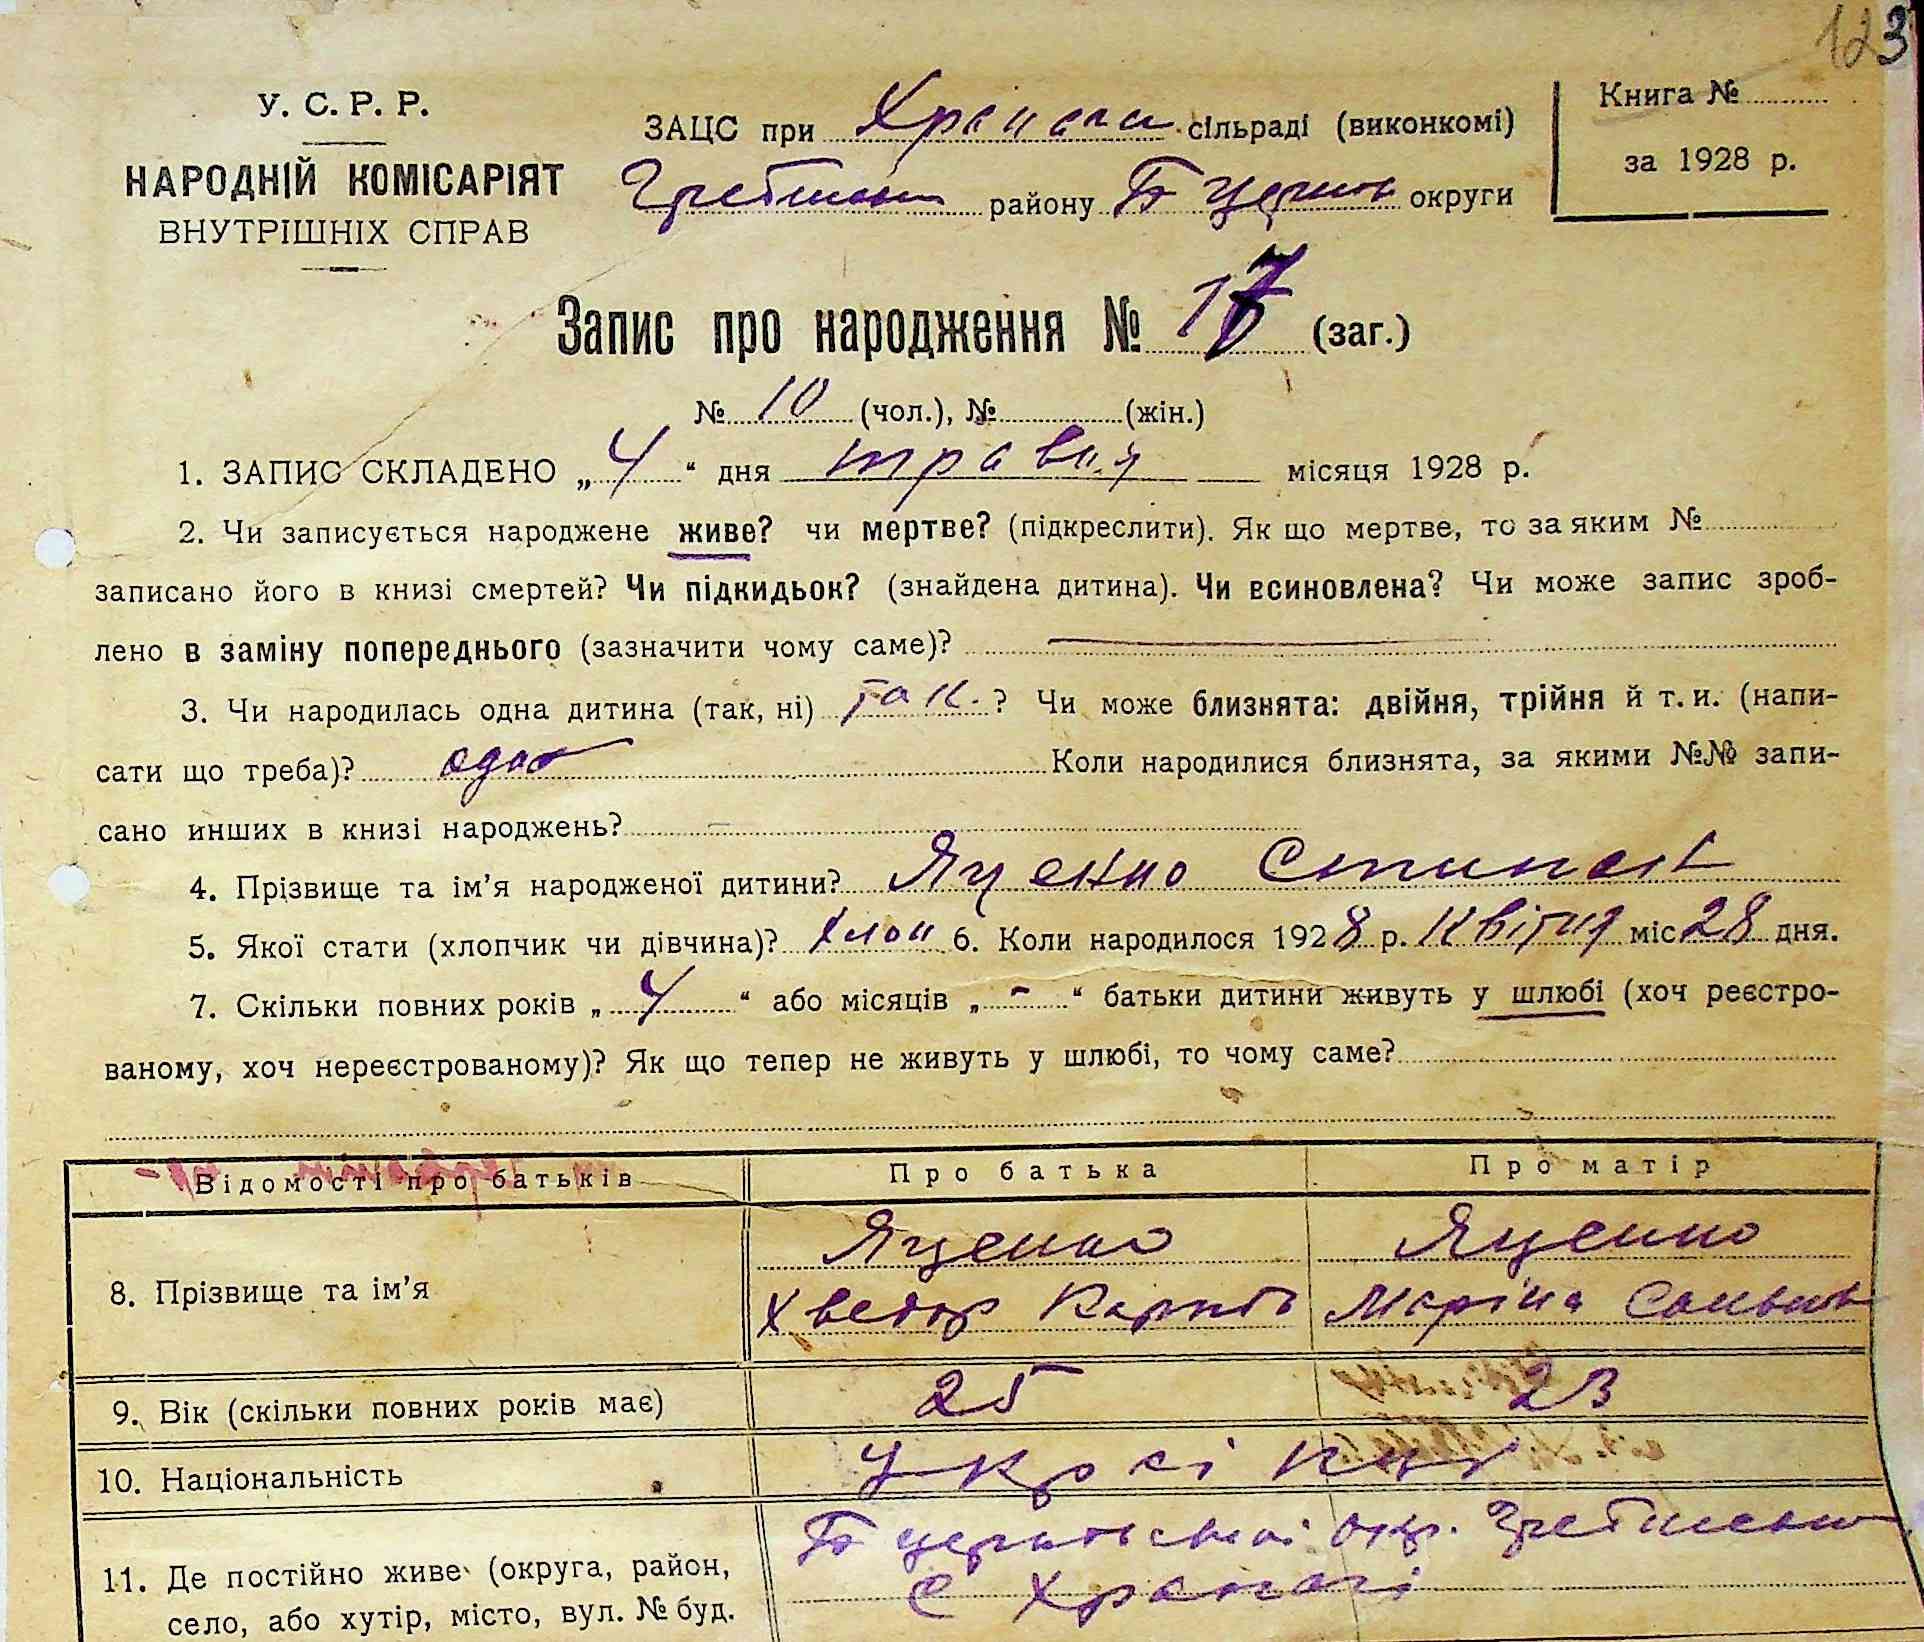 123
У. С. Р. Р.
НАРОДНІЙ КОМІСАРІЯТ
ВНУТРІШНІХ СПРАВ
ЗАЦС при сільраді (виконкомі)
району Б Церків округи
Книга №
за 1928 р.
Запис про народження № 17 (заг.)
№ 10 (чол.), № (жін.)
1. ЗАПИС СКЛАДЕНО „ 4 “ дня травня місяця 1928 р.
2. Чи записується народжене живе? чи мертве? (підкреслити). Як що мертве, то за яким №
записано його в книзі смертей? Чи підкидьок? (знайдена дитина). Чи всиновлена? Чи може запис зроб-
лено в заміну попереднього (зазначити чому саме)?
3. Чи народилась одна дитина (так, ні) так. ? Чи може близнята: двійня, трійня й т. и. (напи-
сати що треба)? одно Коли народилися близнята, за якими №№ запи-
сано инших в книзі народжень? —
4. Прізвище та ім'я народженої дитини? Яценко Степан
5. Якої стати (хлопчик чи дівчина)? хлоп 6. Коли народилося 1928 р. Квітня міс 28 дня.
7. Скільки повних років „ 4 “ або місяців „ - “ батьки дитини живуть у шлюбі (хоч реєстро-
ваному, хоч нереєстрованому)? Як що тепер не живуть у шлюбі, то чому саме?
Відомості про батьків Про батька Про матір
8. Прізвище та ім'я Яценко Яценко
Хведор Карпов Маріна
9. Вік (скільки повних років має) 25 23
10. Національність Українці
11. Де постійно живе (округа, район, Б церківської окр.
село, або хутір, місто, вул. № буд. с